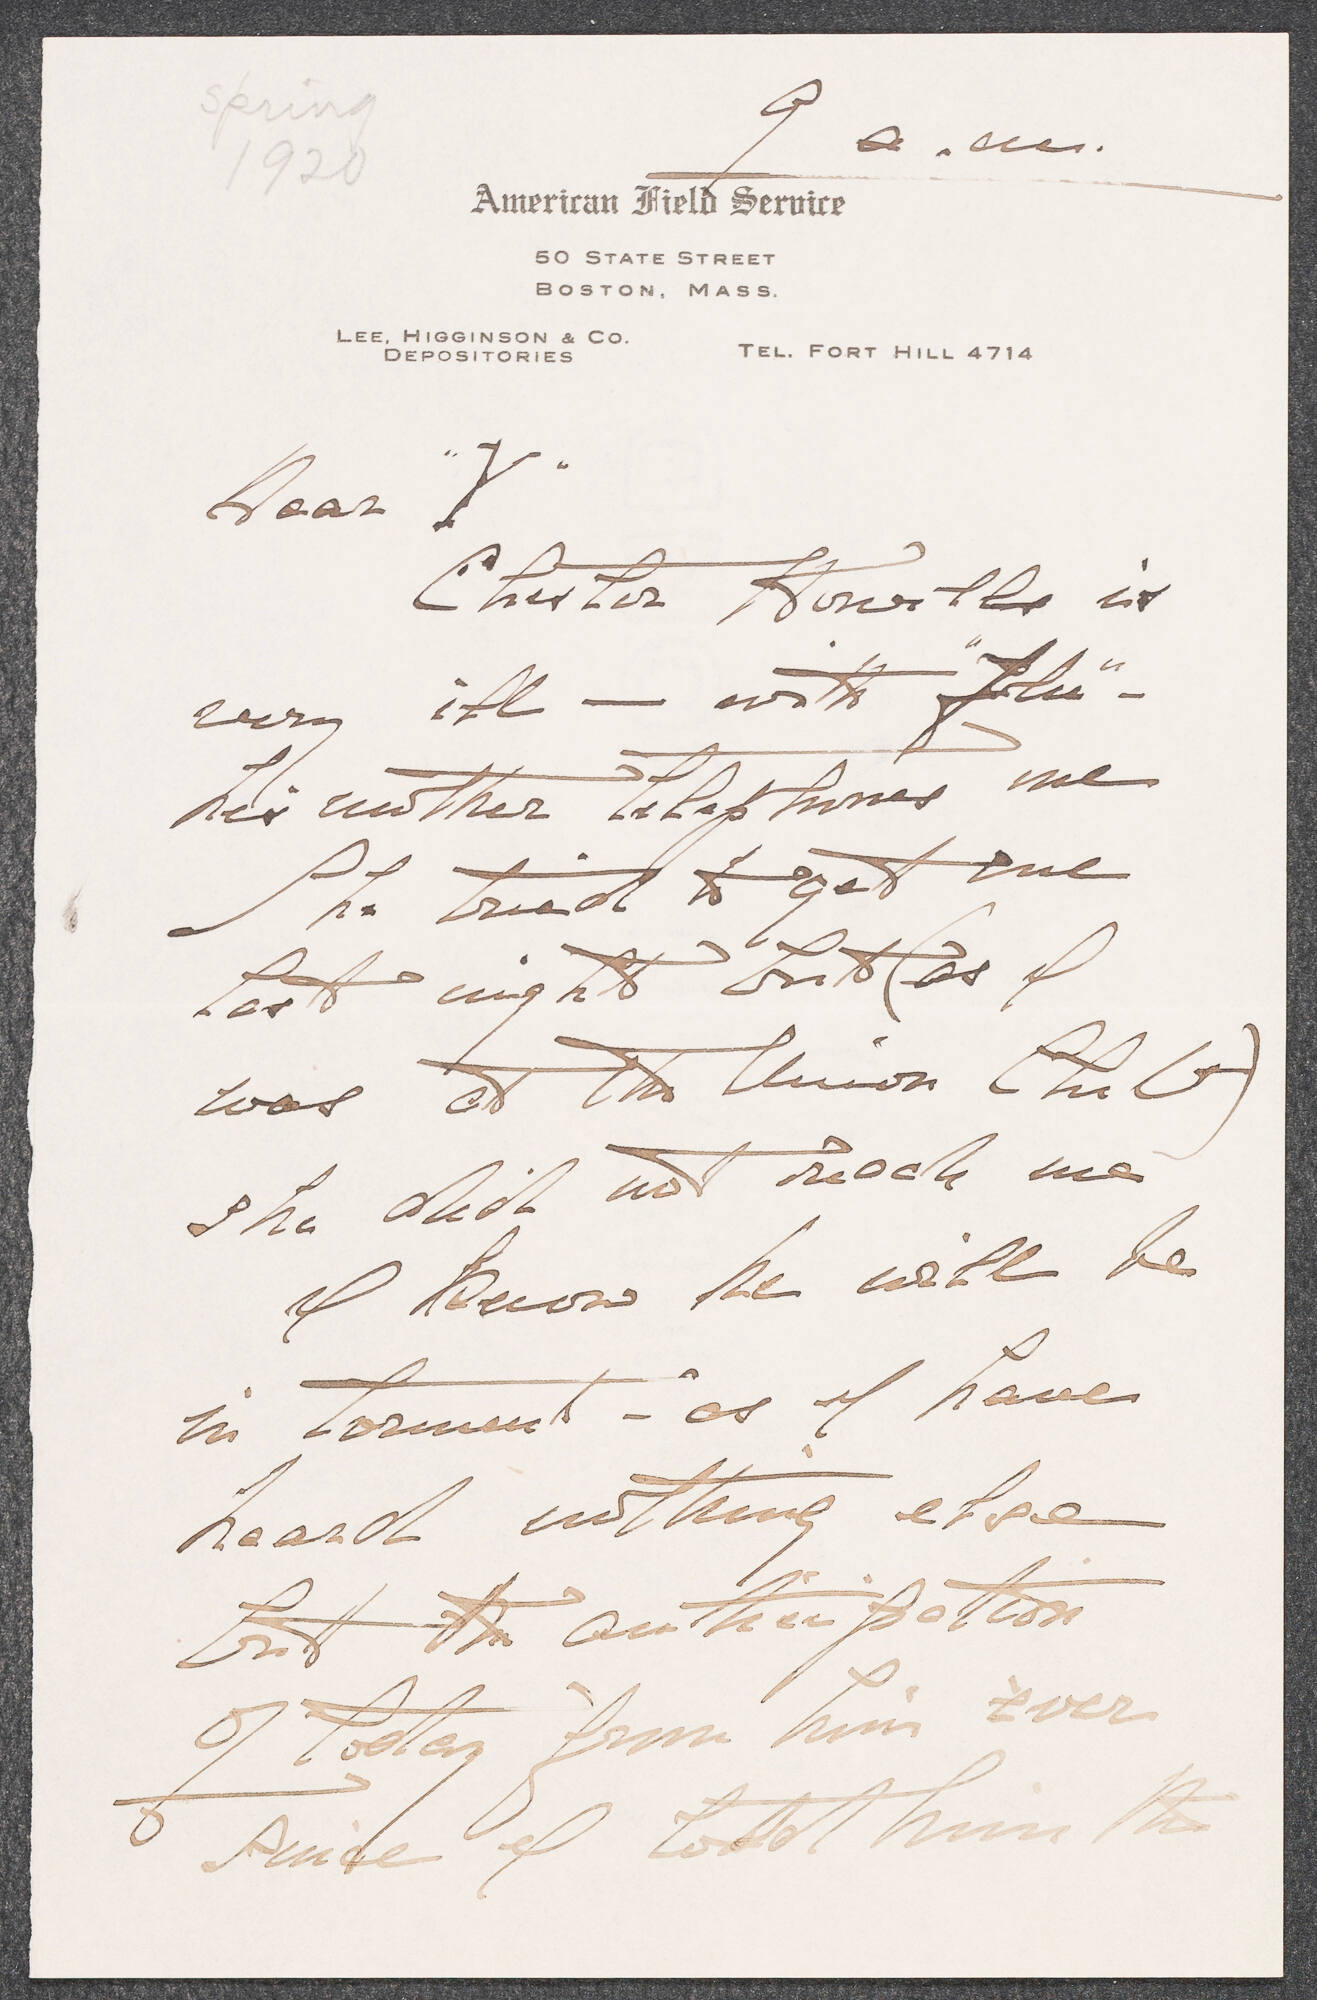 spring
1920
9 a.m.
American Field Service
50 STATE STREET
BOSTON, MASS.
LEE, HIGGINSON & CO.
DEPOSITORIES
TEL. FORT HILL 4714
Dear "Y"
Chester is
very ill — with "Flu" -
his mother telephones me
She tried to get me
last night but (as I
was at the Union Club)
she did not reach me
I know he will be
in torment - as I have
heard nothing else
but the anticipation
of today from him ever
since I told him the